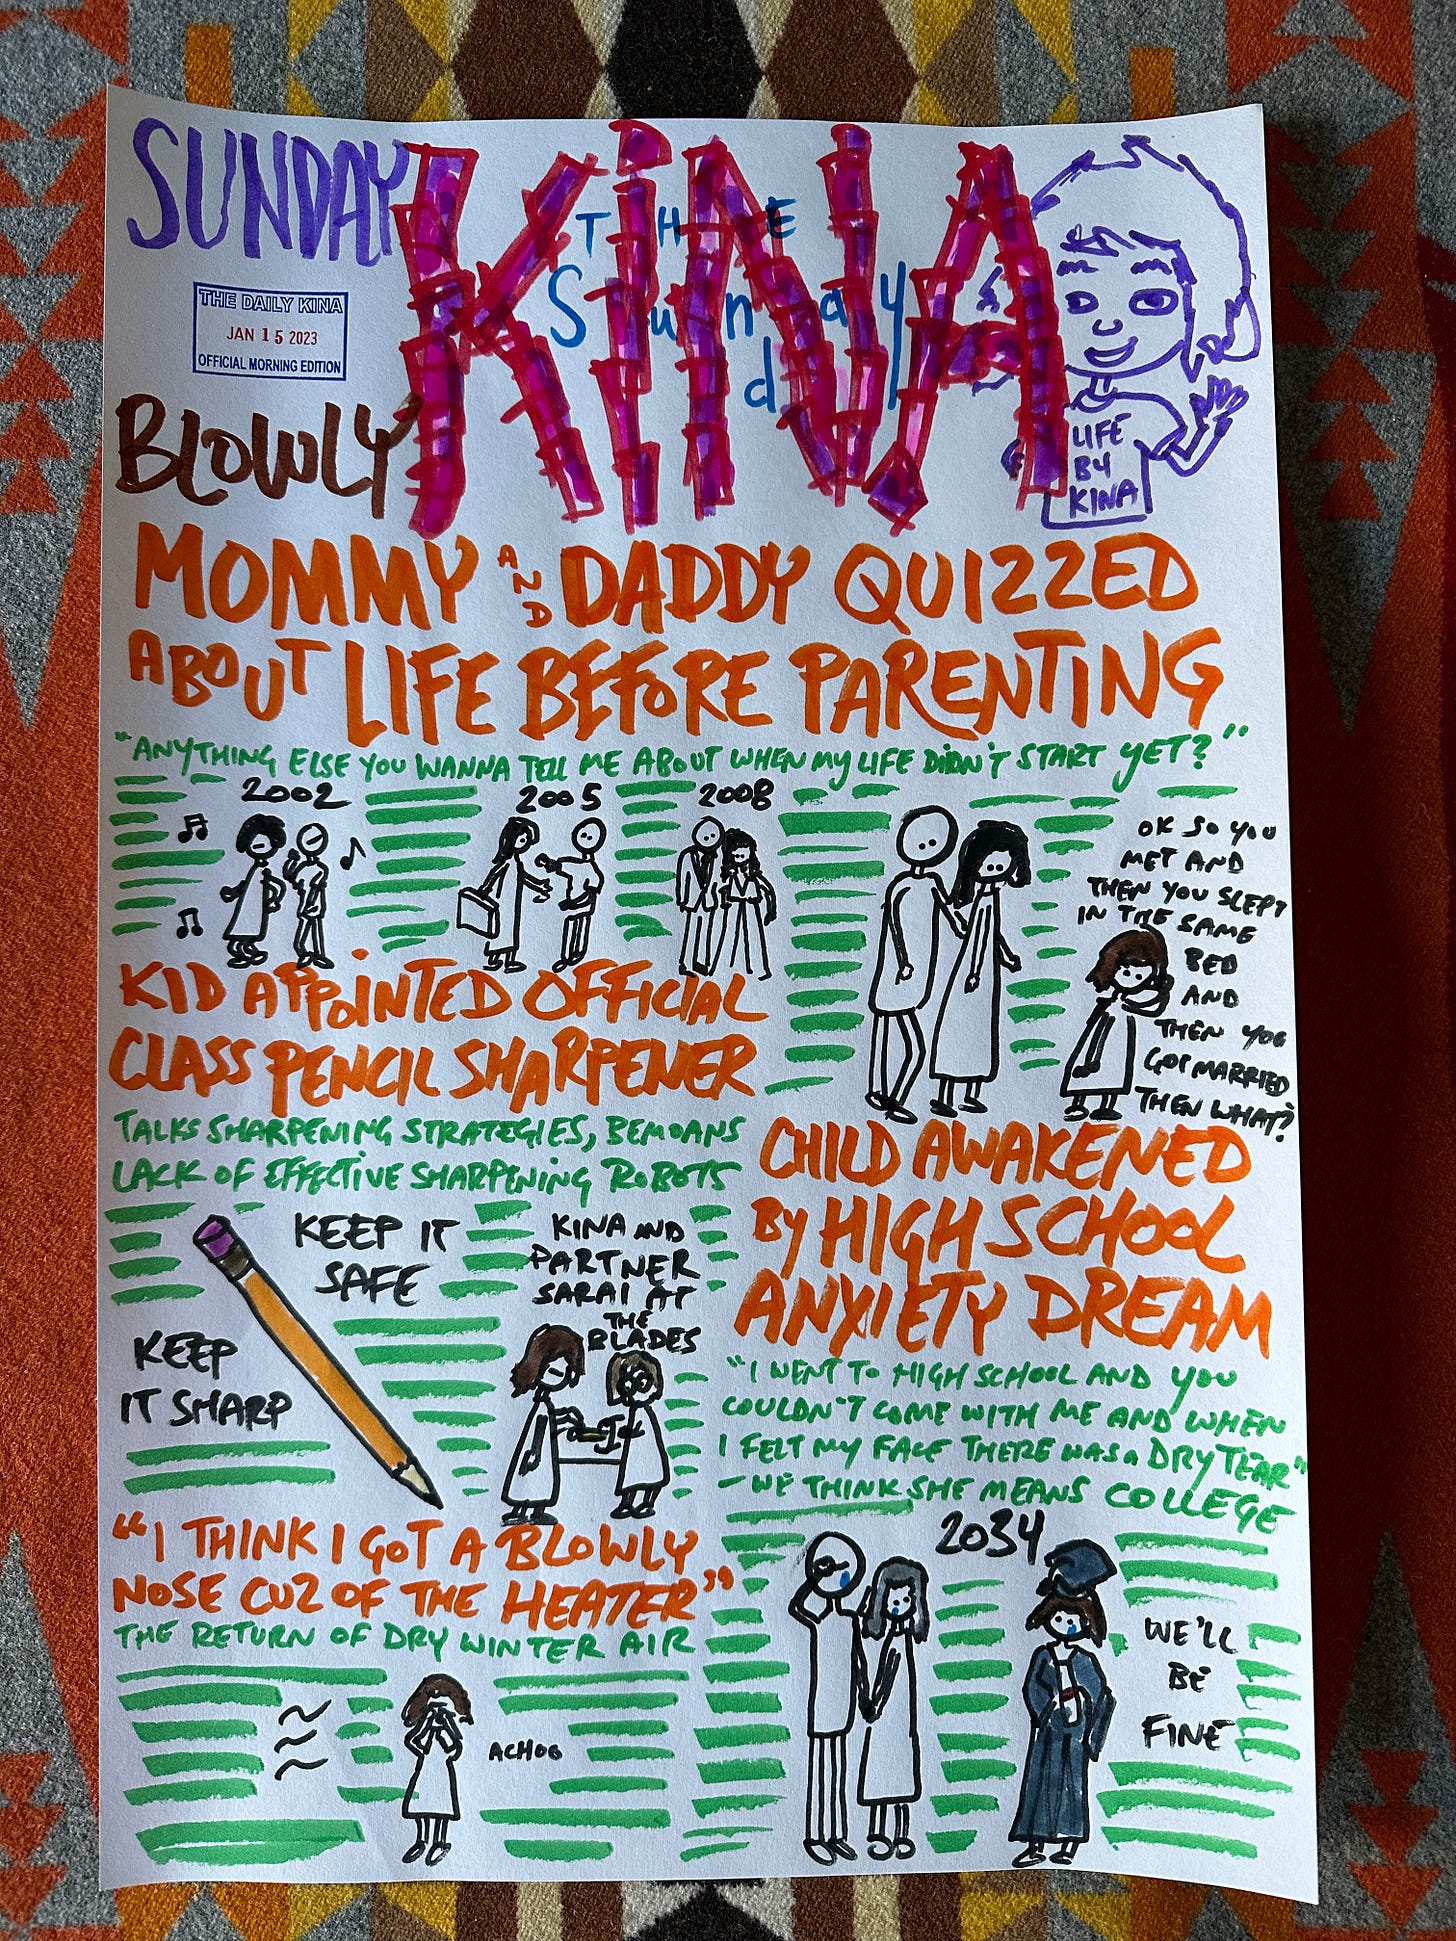 SUNDAY
KINA
THE
Sunday
THE DAILY KINA
JAN 15 2023
OFFICIAL MORNING EDITION
BLOWLY
LIFE
BY
KINA
MOMMY AND DADDY QUIZZED
ABOUT LIFE BEFORE PARENTING
"ANYTHING ELSE YOU WANNA TELL ME ABOUT WHEN MY LIFE DIDN'T START YET?"
2002
2005
2008
OK SO YOU
MET AND
THEN YOU SLEPT
IN THE SAME
BED
AND
THEN YOU
GOT MARRIED
THEN WHAT?
KID APPOINTED OFFICIAL
CLASS PENCIL SHARPENER
TALKS SHARPENING STRATEGIES, BEMOANS
LACK OF EFFECTIVE SHARPENING ROBOTS
KEEP IT
SAFE
KEEP
IT SHARP
KINA AND
PARTNER
SARAI AT
THE
BLADES
CHILD AWAKENED
BY HIGH SCHOOL
ANXIETY DREAM
"I WENT TO HIGH SCHOOL AND YOU
COULDN'T COME WITH ME AND WHEN
I FELT MY FACE THERE WAS A DRY TEAR"
- WE THINK SHE MEANS COLLEGE
2034
WE'LL
BE
FINE
"I THINK I GOT A BLOWLY
NOSE CUZ OF THE HEATER"
THE RETURN OF DRY WINTER AIR
ACHOO